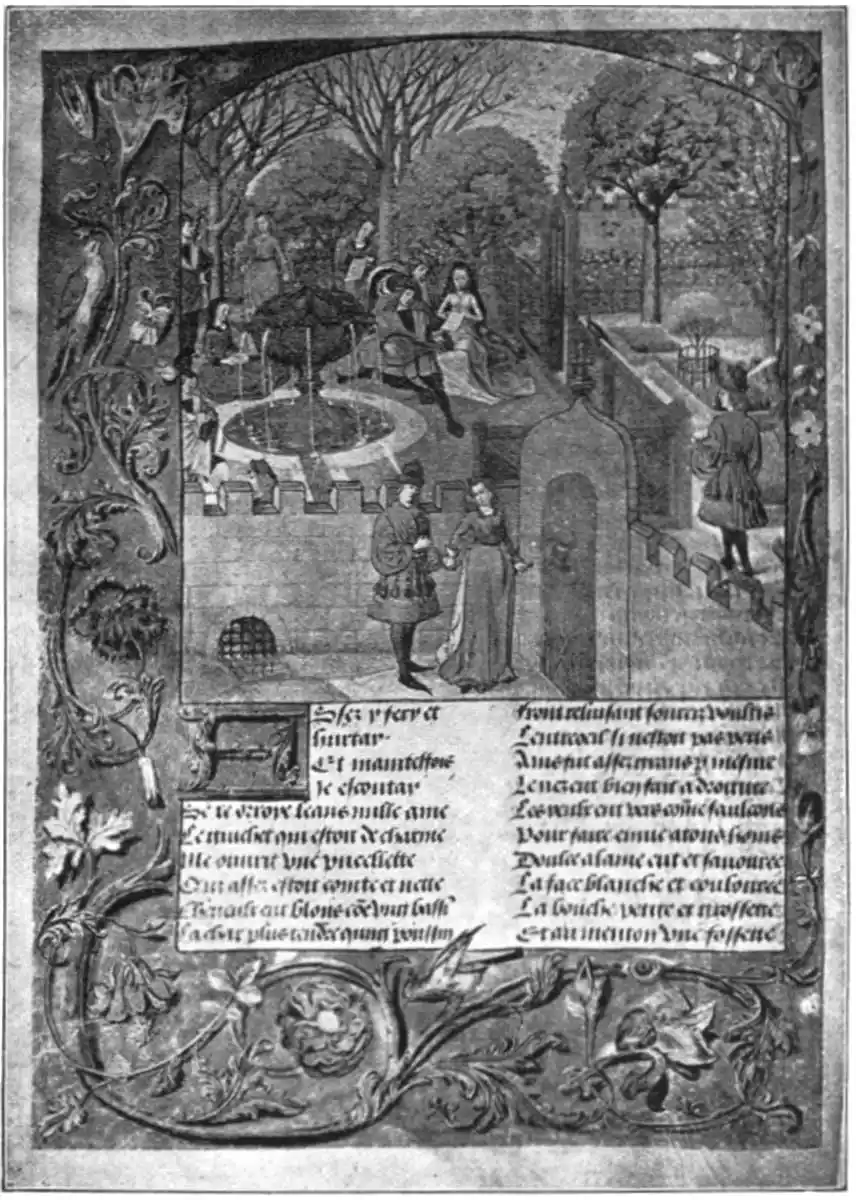 Assez y fery et
hurtay
Et maintesfois
Je escoutay
Se ie orroye leans nulle ame
Le guichet qui estoit de charme
Me ouurit vne pucellette
Qui assez estoit cointe et nette
Cheueulx eut blons cõe vng bassin
La char plus tendre qung poussin
Front reluisant sourcilz voultis
Lentreoeil si nestoit pas petis
Ains fut assez grans p mesure
Le nez eut bien fait a droiture
Les yeulx eut vers cõme faulcons
Pour faire enuie a tous homs
Doulce alaine eut et sauouree
La face blanche et coulouree
La bouche petite et grossette
Et au menton vne fossette